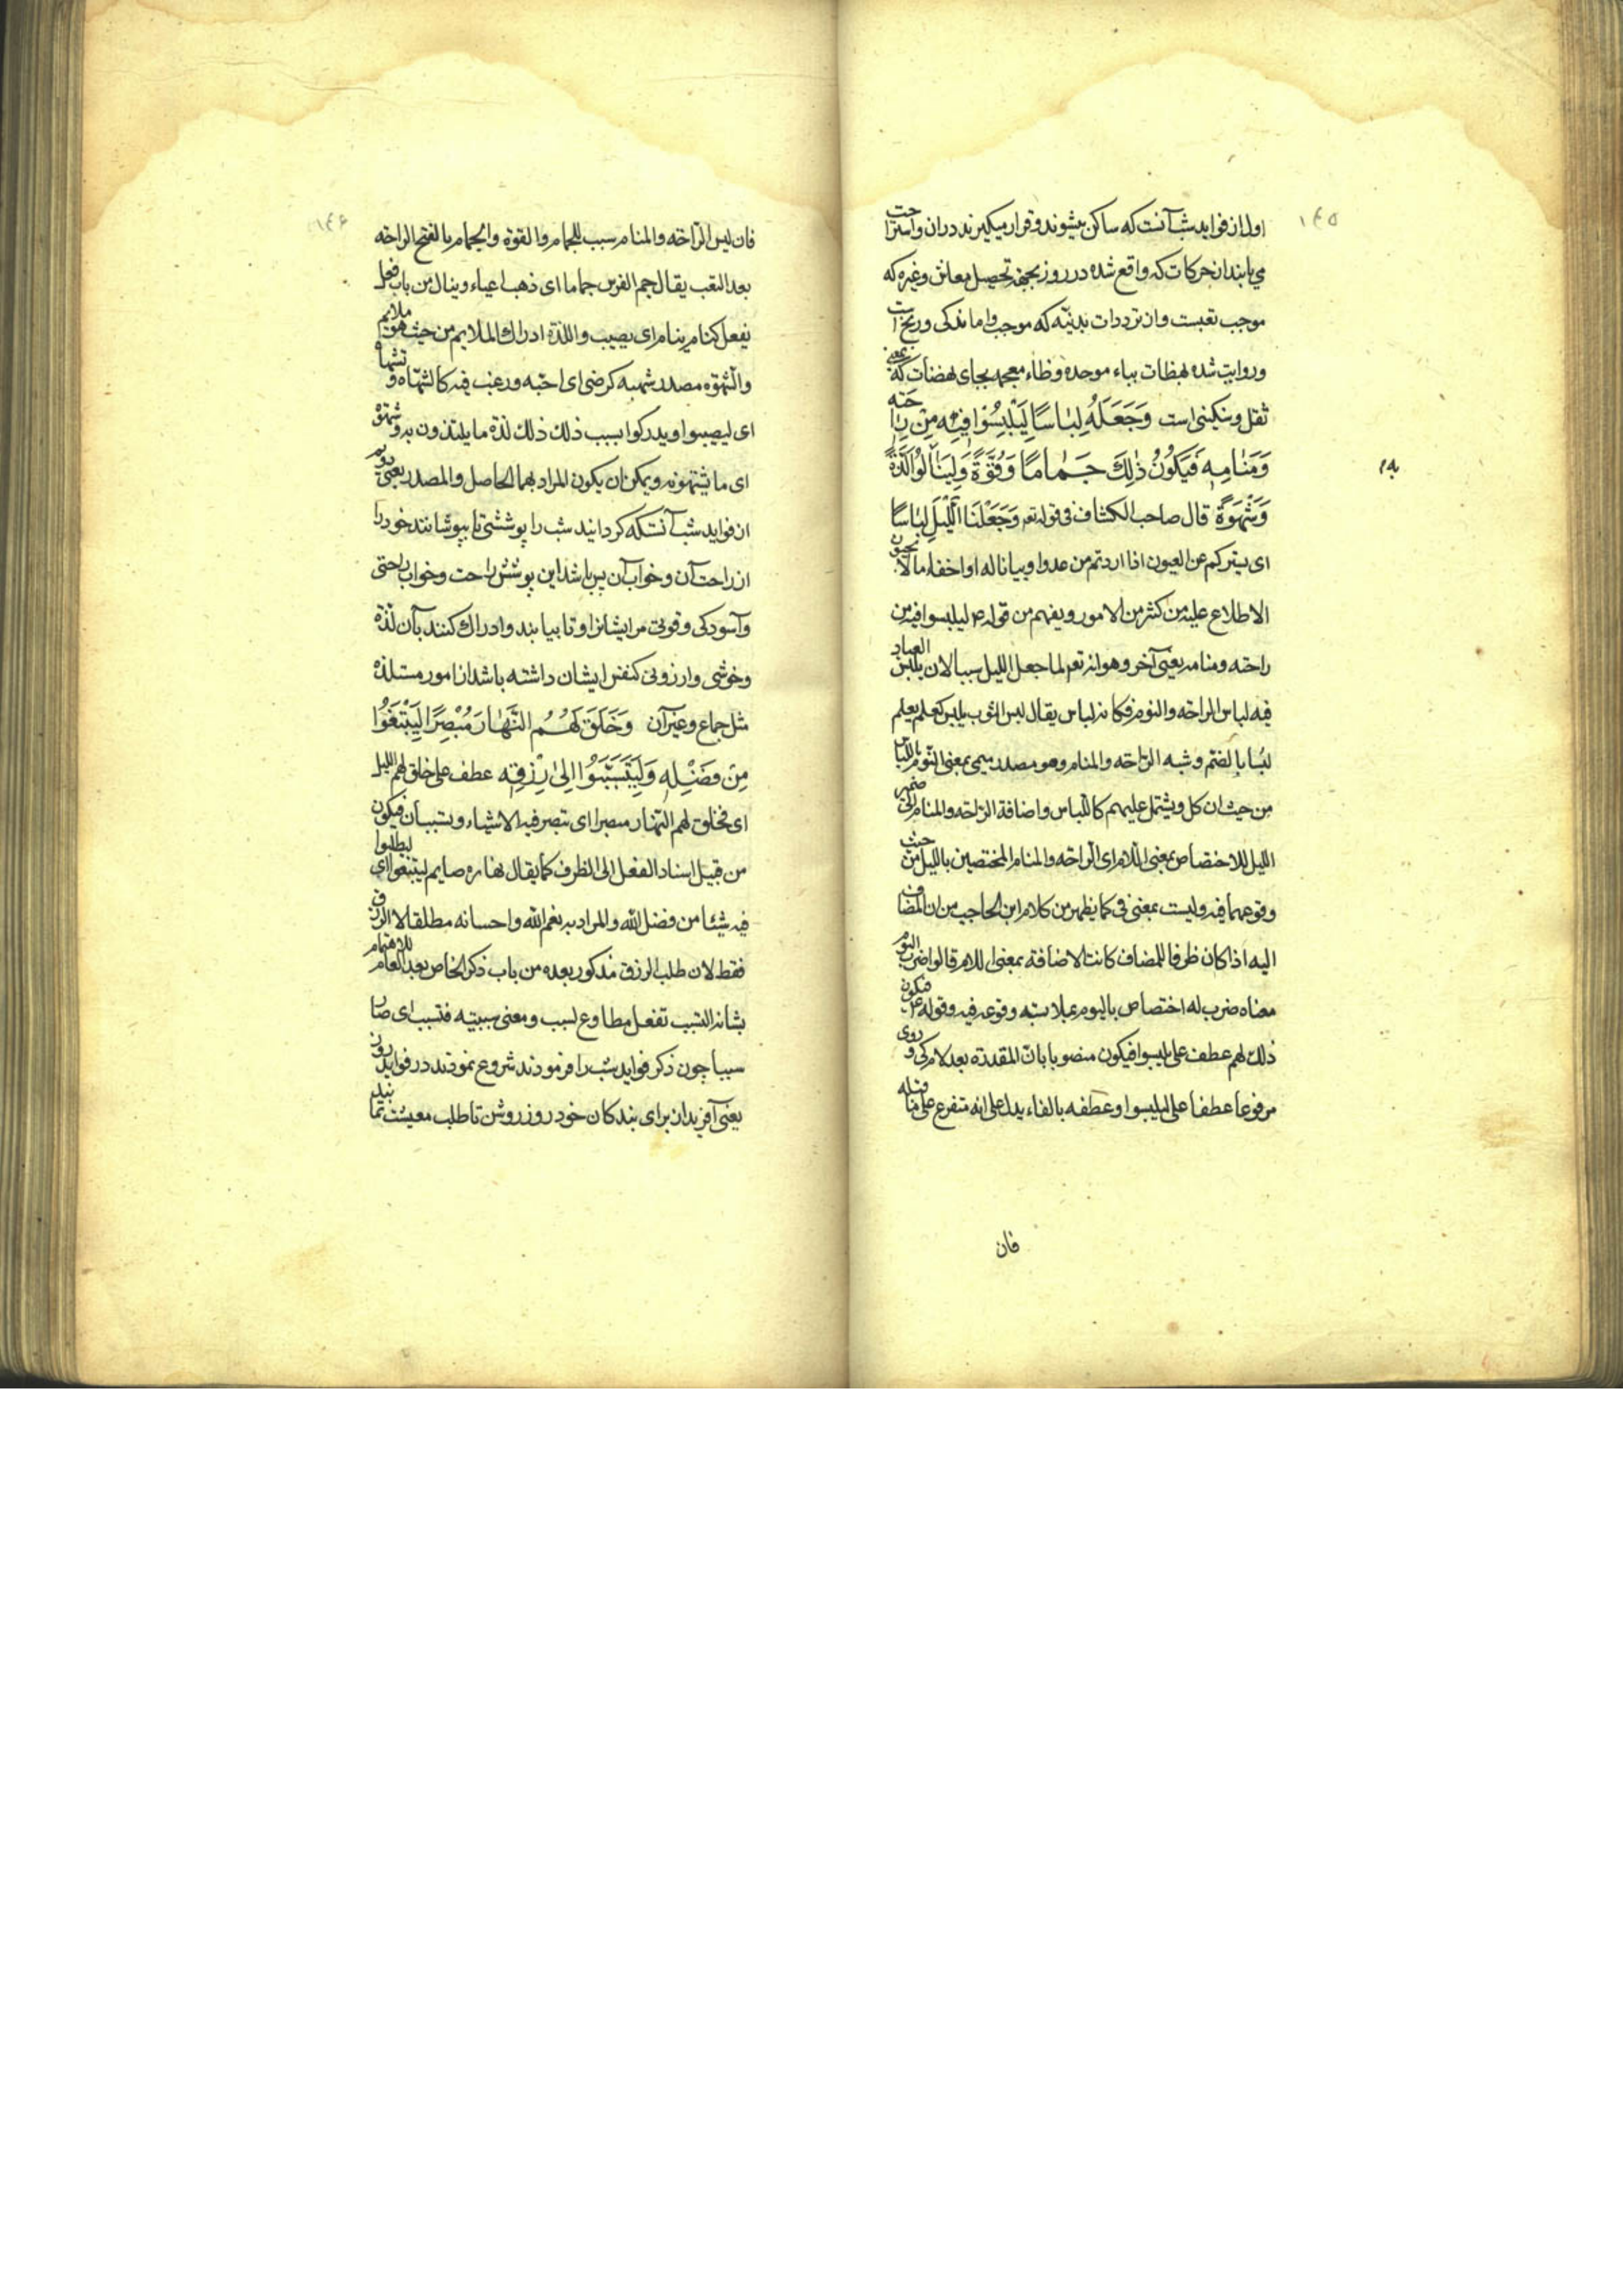 ١٤٥
اول از فوايد شب آنست که ساکن ميشوند و قرار ميکيرند در ان و استراحت
مي يابند از حرکات که واقع شده در روز بجهة تحصيل معاش وغيره که
موجب تعبست و از ترددات بدنيّه که موجب واماندکی و رنج است
وروايت شده بهظات بباء موحده وظاء معجمه بجای نهضات که بمعنی
ثقل وسنکينی است وَجَعَلَهُ لِبٰاسًا لِيَلْبِسُوٰا فِيهِ مِنْ رٰاحَتِهِ
وَمَنٰامِهِ فَيَكُونُ ذٰلِكَ جَمٰامًا وَقُوَّةً وَلِيَنٰالُوا لَذَّةً
وَشَهْوَةً قال صاحب الكشاف فی قوله تعر وَجَعَلْنَا اللَّيْلَ لِبٰاسًا
ای يستركم عن العيون اذا اردتم من عدو او بياتا له او اخفاء ما لا تحبون
الاطلاع عليه من كثير من الامور ويفهم من قوله ع ليلبسوا فيه من
راحته ومنامه معنی آخر وهو انه تعر لما جعل الليل سببا لان يلبس العباد
فيه لباس الراحة والنوم فكانه لباس يقال لبس الثوب يلبس كعلم يعلم
لبسا بالضم وشبه الرّاحة والمنام وهو مصدر ميمی بمعنی النّوم باللباس
من حيث ان كل ويشتمل عليهم كاللّباس واضافة الرّاحة والمنام الی ضمير
الليل للاختصاص بمعنی اللام ای الراحة والمنام المختصين بالليل من حيث
وقوعهما فيه وليست بمعنی فی كما يظهر من كلام ابن الحاجب من ان المضاف
اليه اذا كان ظرفا للمضاف كانت الاضافة بمعنی اللام قالوا ضرب اليوم
معناه ضرب له اختصاص باليوم بملابسته وقوعه فيه وقوله ع فيكون
ذلك لهم عطف علی يلبسوا فيكون منصوبا بان المقدرة بعد لام كی وروی
مرفوعا عطفا علی ليلبسوا وعطفه بالفاء يدل علی انه متفرع علی ما قبله
فان
١٤٦
فان لبس الرّاحة والمنام سبب للجمام والقوة والجمام بالفتح الراحة
بعد التعب يقال جم الفرس جماما ای ذهب اعياءه وينال من باب فعل
يفعل كنام ينام ای يصيب واللذة ادراك الملايم من حيث هو ملايم
والشهوة مصدر شهيه كرضی ای احبّه ورغب فيه كاشتهاه وتشهاه
ای ليصيبوا ويدركوا بسبب ذلك لذة ما يلتذون به وشهوة
ای ما يشتهونه ويمكن ان يكون المراد بهما الحاصل والمصدر يعنی دوم
از فوايد شب آنستکه کردانيد شب را پوششی تا بپوشانند خود را
از راحت آن وخواب آن پس باشد اين پوشش راحت وخواب راحتی
وآسودکی وقوتی مر ايشانرا وتا بيابند وادراك كنند بآن لذة
وخوشی وارزوئی کنفس ايشان داشته باشد از امور مستلذه
مثل جماع وغير آن وَخَلَقَ لَهُمُ النَّهٰارَ مُبْصِرًا لِيَبْتَغُوا
مِنْ فَضْلِهِ وَلِيَتَسَبَّبُوا اِلیٰ رِزْقِهِ عطف علی خلق لهم الليل
ای فخلق لهم النّهار مبصرا ای تبصر فيه الاشياء وتستبان فيكون
من قبيل اسناد الفعل الی الظرف كما يقال نهاره صايم ليبتغوا ای ليطلبوا
فيه شيئا من فضل الله والمراد به نعم الله واحسانه مطلقا لا الرزق
فقط لان طلب الرزق مذكور بعده من باب ذكر الخاص بعد العام للاهتمام
بشانه التسبب تفعل مطاوع لسبب ومعنی سببته فتسبب ای صار
سببا چون ذکر فوايد شب را فرمودند شروع نمودند در فوايد روز
يعنی آفريد از برای بندکان خود روز روشن تا طلب معيشت نمايند